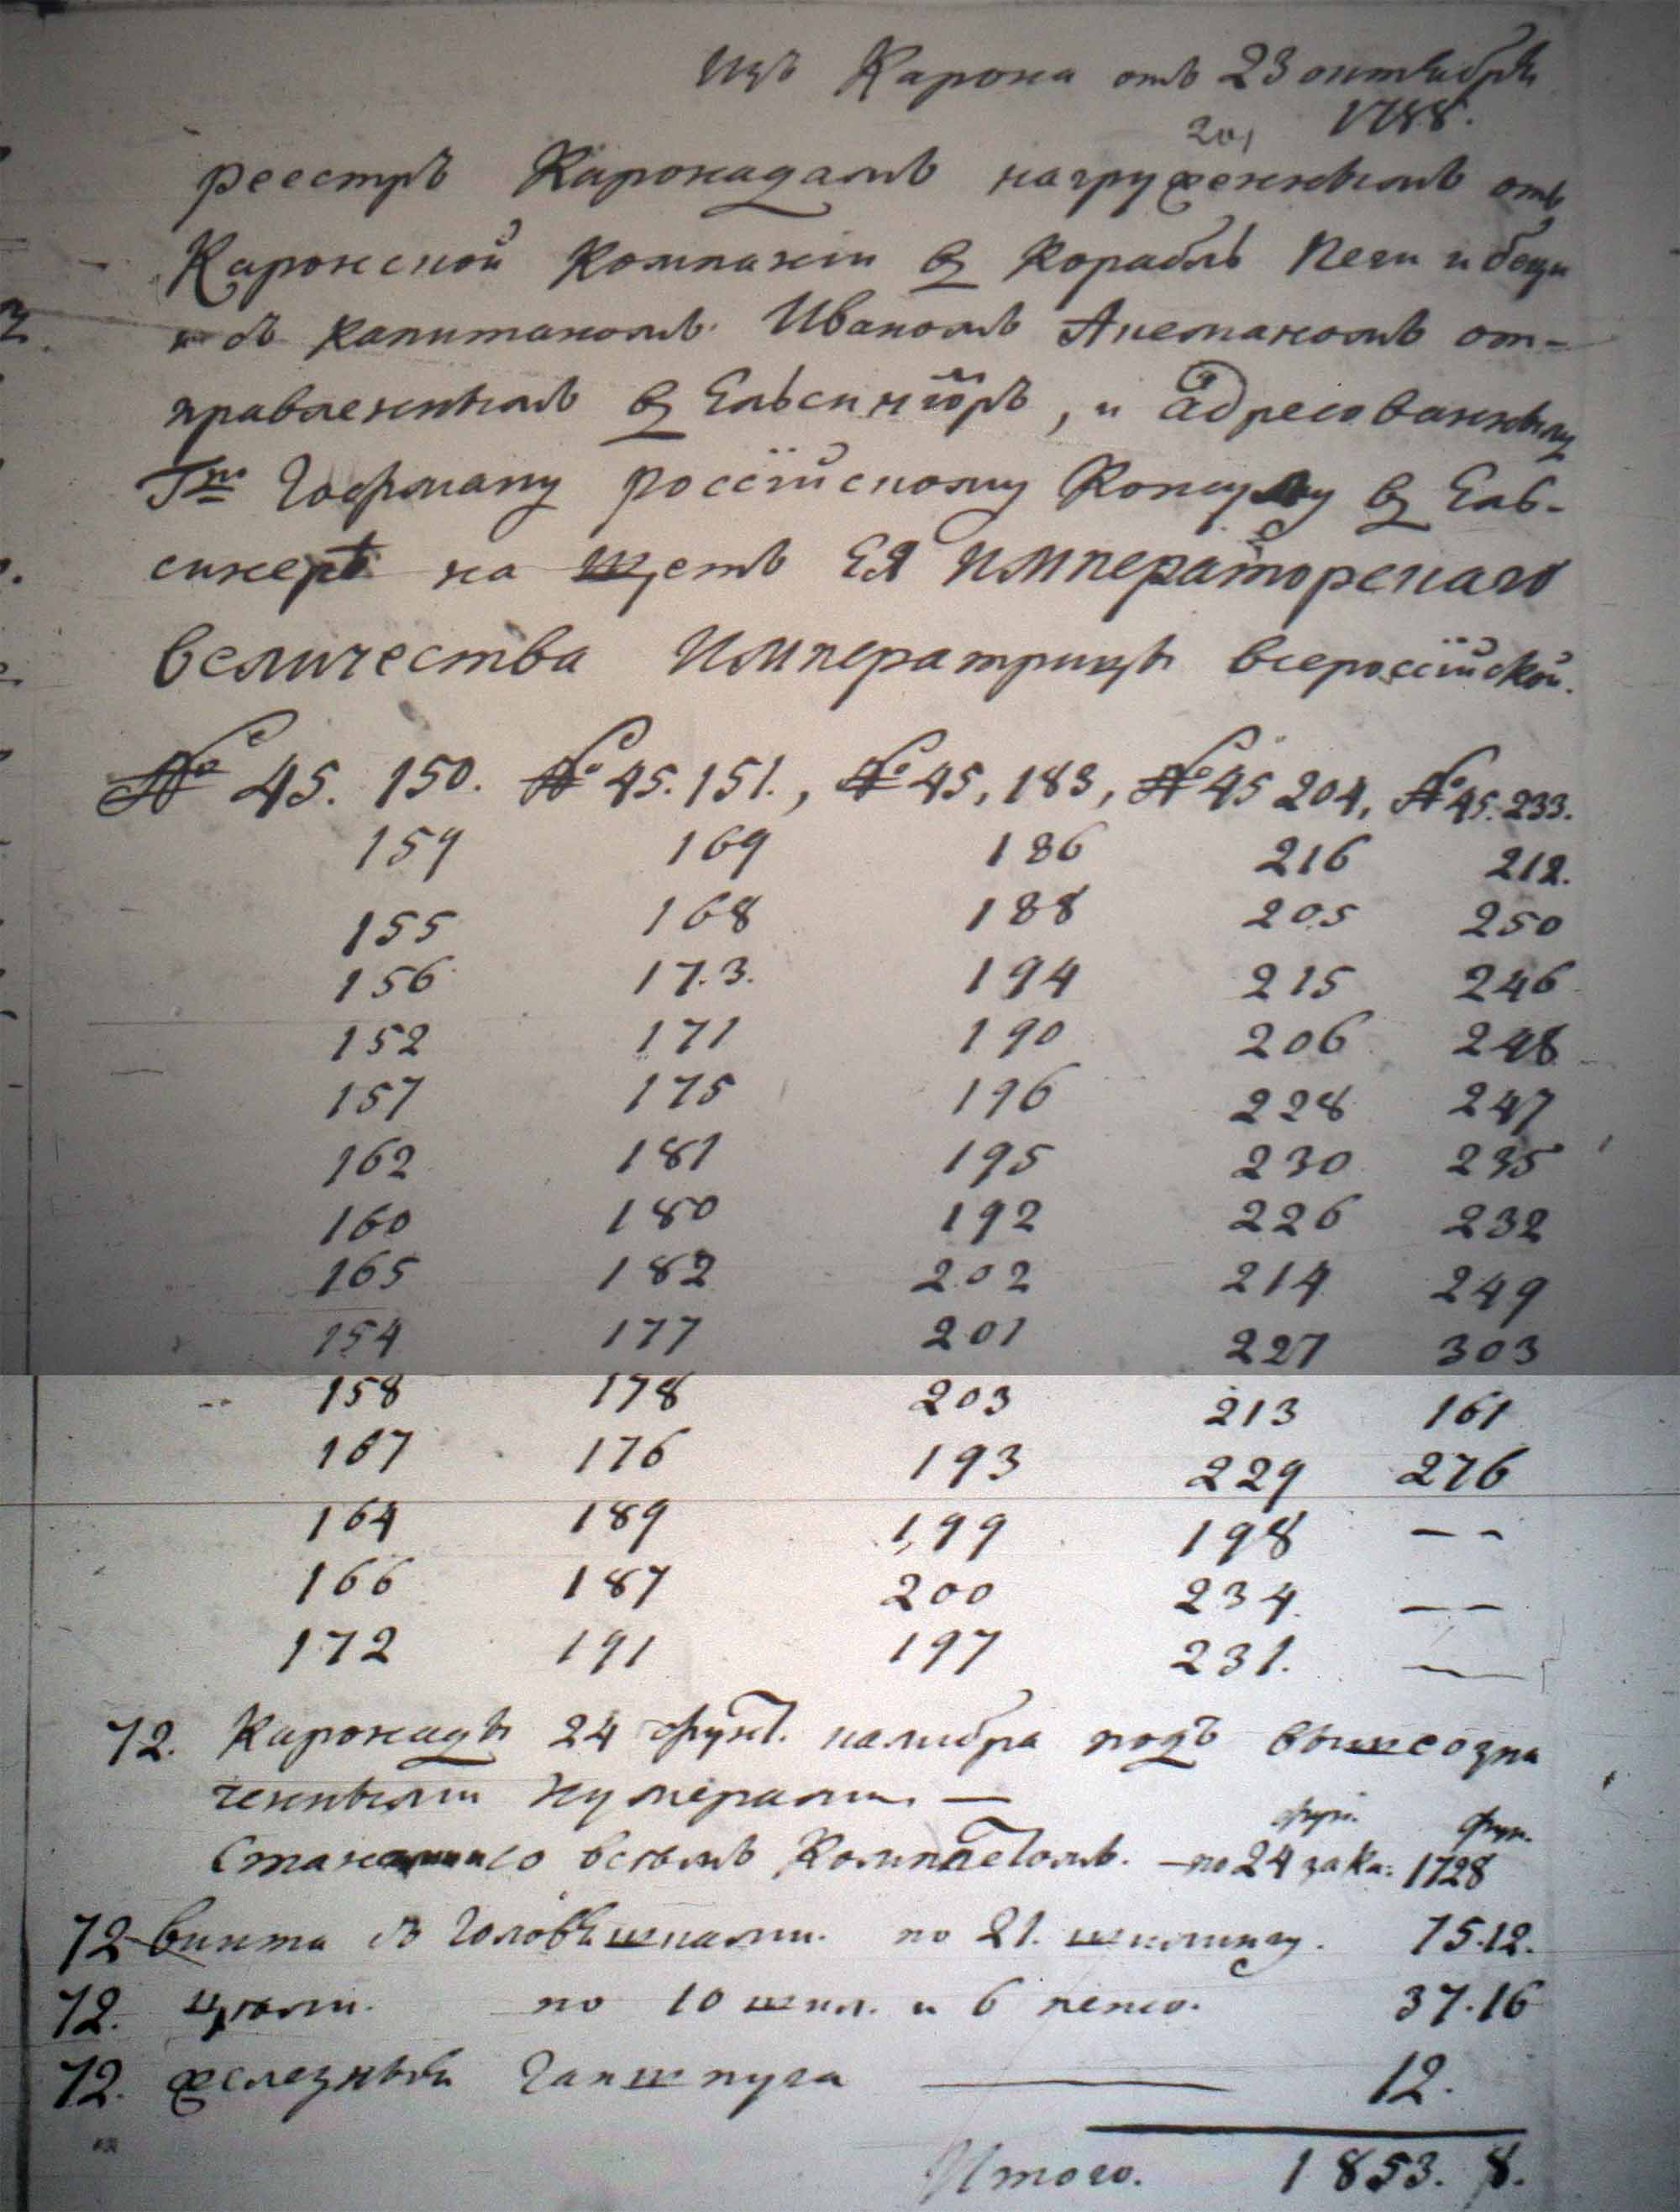 Изъ Карона отъ 23 октября
1788. го,
реестръ Каронадамъ нагруженнымъ отъ
Каронской Компанїи въ Корабль Пеги и беци
и съ капитаномъ Иваномъ Акеманомъ от-
правленнымъ въ Ельсинѣоръ, и адресованнымъ
Гну Гофману россїйскому Консулу въ Ель-
синерѣ на щетъ ЕЯ Императорскаго
величества Императрицы всероссїйской.
№ 45. 150. № 45. 151., № 45, 183, № 45 204, № 45. 233.
159 169 186 216 212.
155 168 188 205 250
156 17.3. 194 215 246
152 171 190 206 248
157 175 196 228 247
162 181 195 230 235
160 180 192 226 232
165 182 202 214 249
154 177 201 227 303
158 178 203 213 161
167 176 193 229 276
164 189 199 198 — -
166 187 200 234. — —
172 191 197 231. —
72. Каронады 24 фунт. калибра подъ вышеозна
ченными нумерами. —
фун. фун.
со всемъ Комплетомъ. — по 24 за ка: 1728
72 винта съ Головѣшками. по 21. шилингу. 75.12.
72. по 10 шил. и 6 пенсо. 37.16
72. железный Ганшпуга — 12.
Итого. 1853. 8.